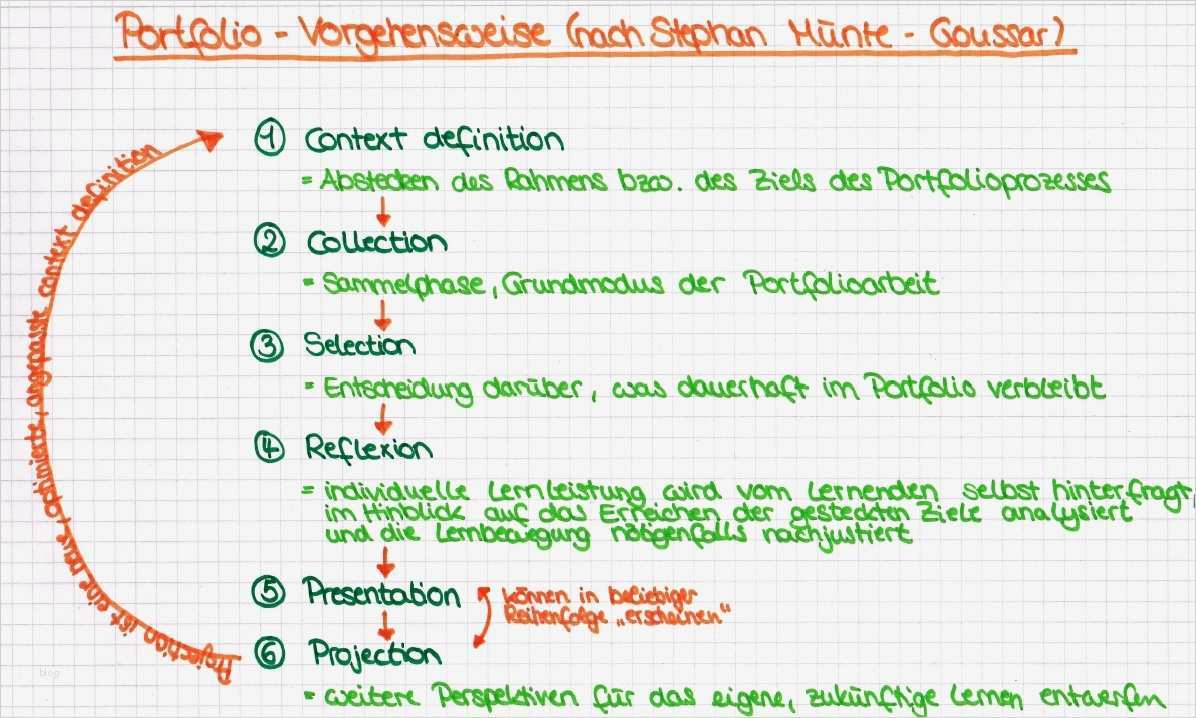 Portfolio - Vorgehensweise (nach Stephan Münte - Goussar)
① Context definition
= Abstecken des Rahmens bzw. des Ziels des Portfolioprozesses
② Collection
= Sammelphase, Grundmodus der Portfolioarbeit
③ Selection
= Entscheidung darüber, was dauerhaft im Portfolio verbleibt
④ Reflexion
= individuelle Lernleistung wird vom Lernenden selbst hinterfragt,
im Hinblick auf das Erreichen der gesteckten Ziele analysiert
und die Lernbewegung nötigenfalls nachjustiert
⑤ Presentation
können in beliebiger
Reihenfolge „erscheinen"
⑥ Projection
= weitere Perspektiven für das eigene, zukünftige Lernen entwerfen
Projection ist eine neue, optimierte, angepasste context definition
blog